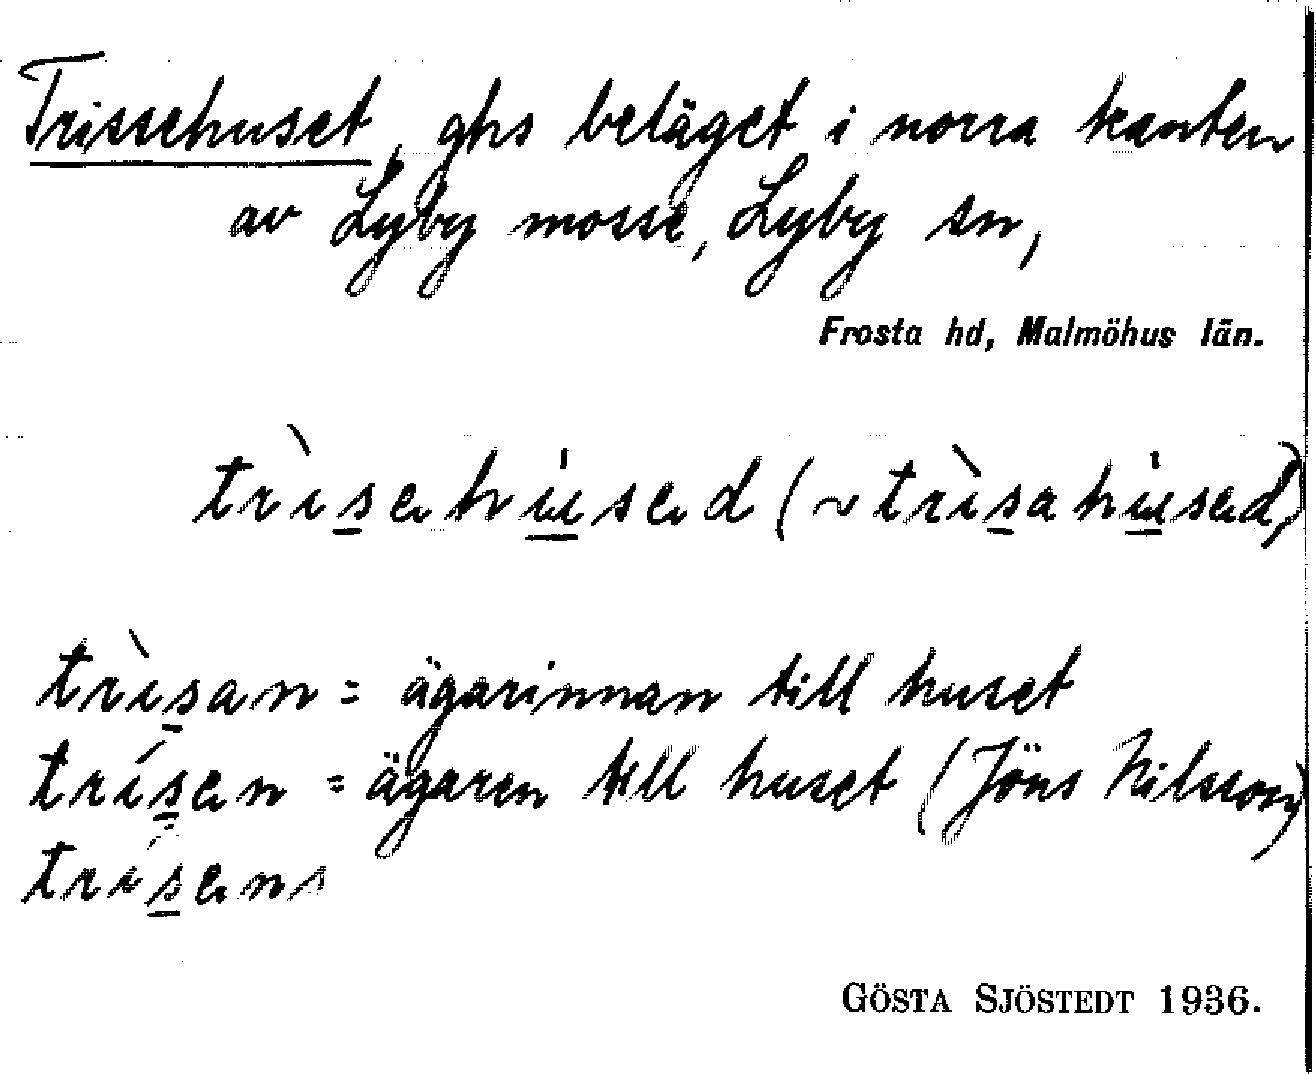 Trissehuset, ghs beläget i norra kanten
av Lyby mosse, Lyby sn,
Frosta hd, Malmöhus län.
trìs̲ehu̲̇sed (~ trìs̲ahu̲̇sed)
trìs̲an = ägarinnan till huset
trís̲en = ägaren till huset (Jöns Nilsson)
trís̲ens
GÖSTA SJÖSTEDT 1936.